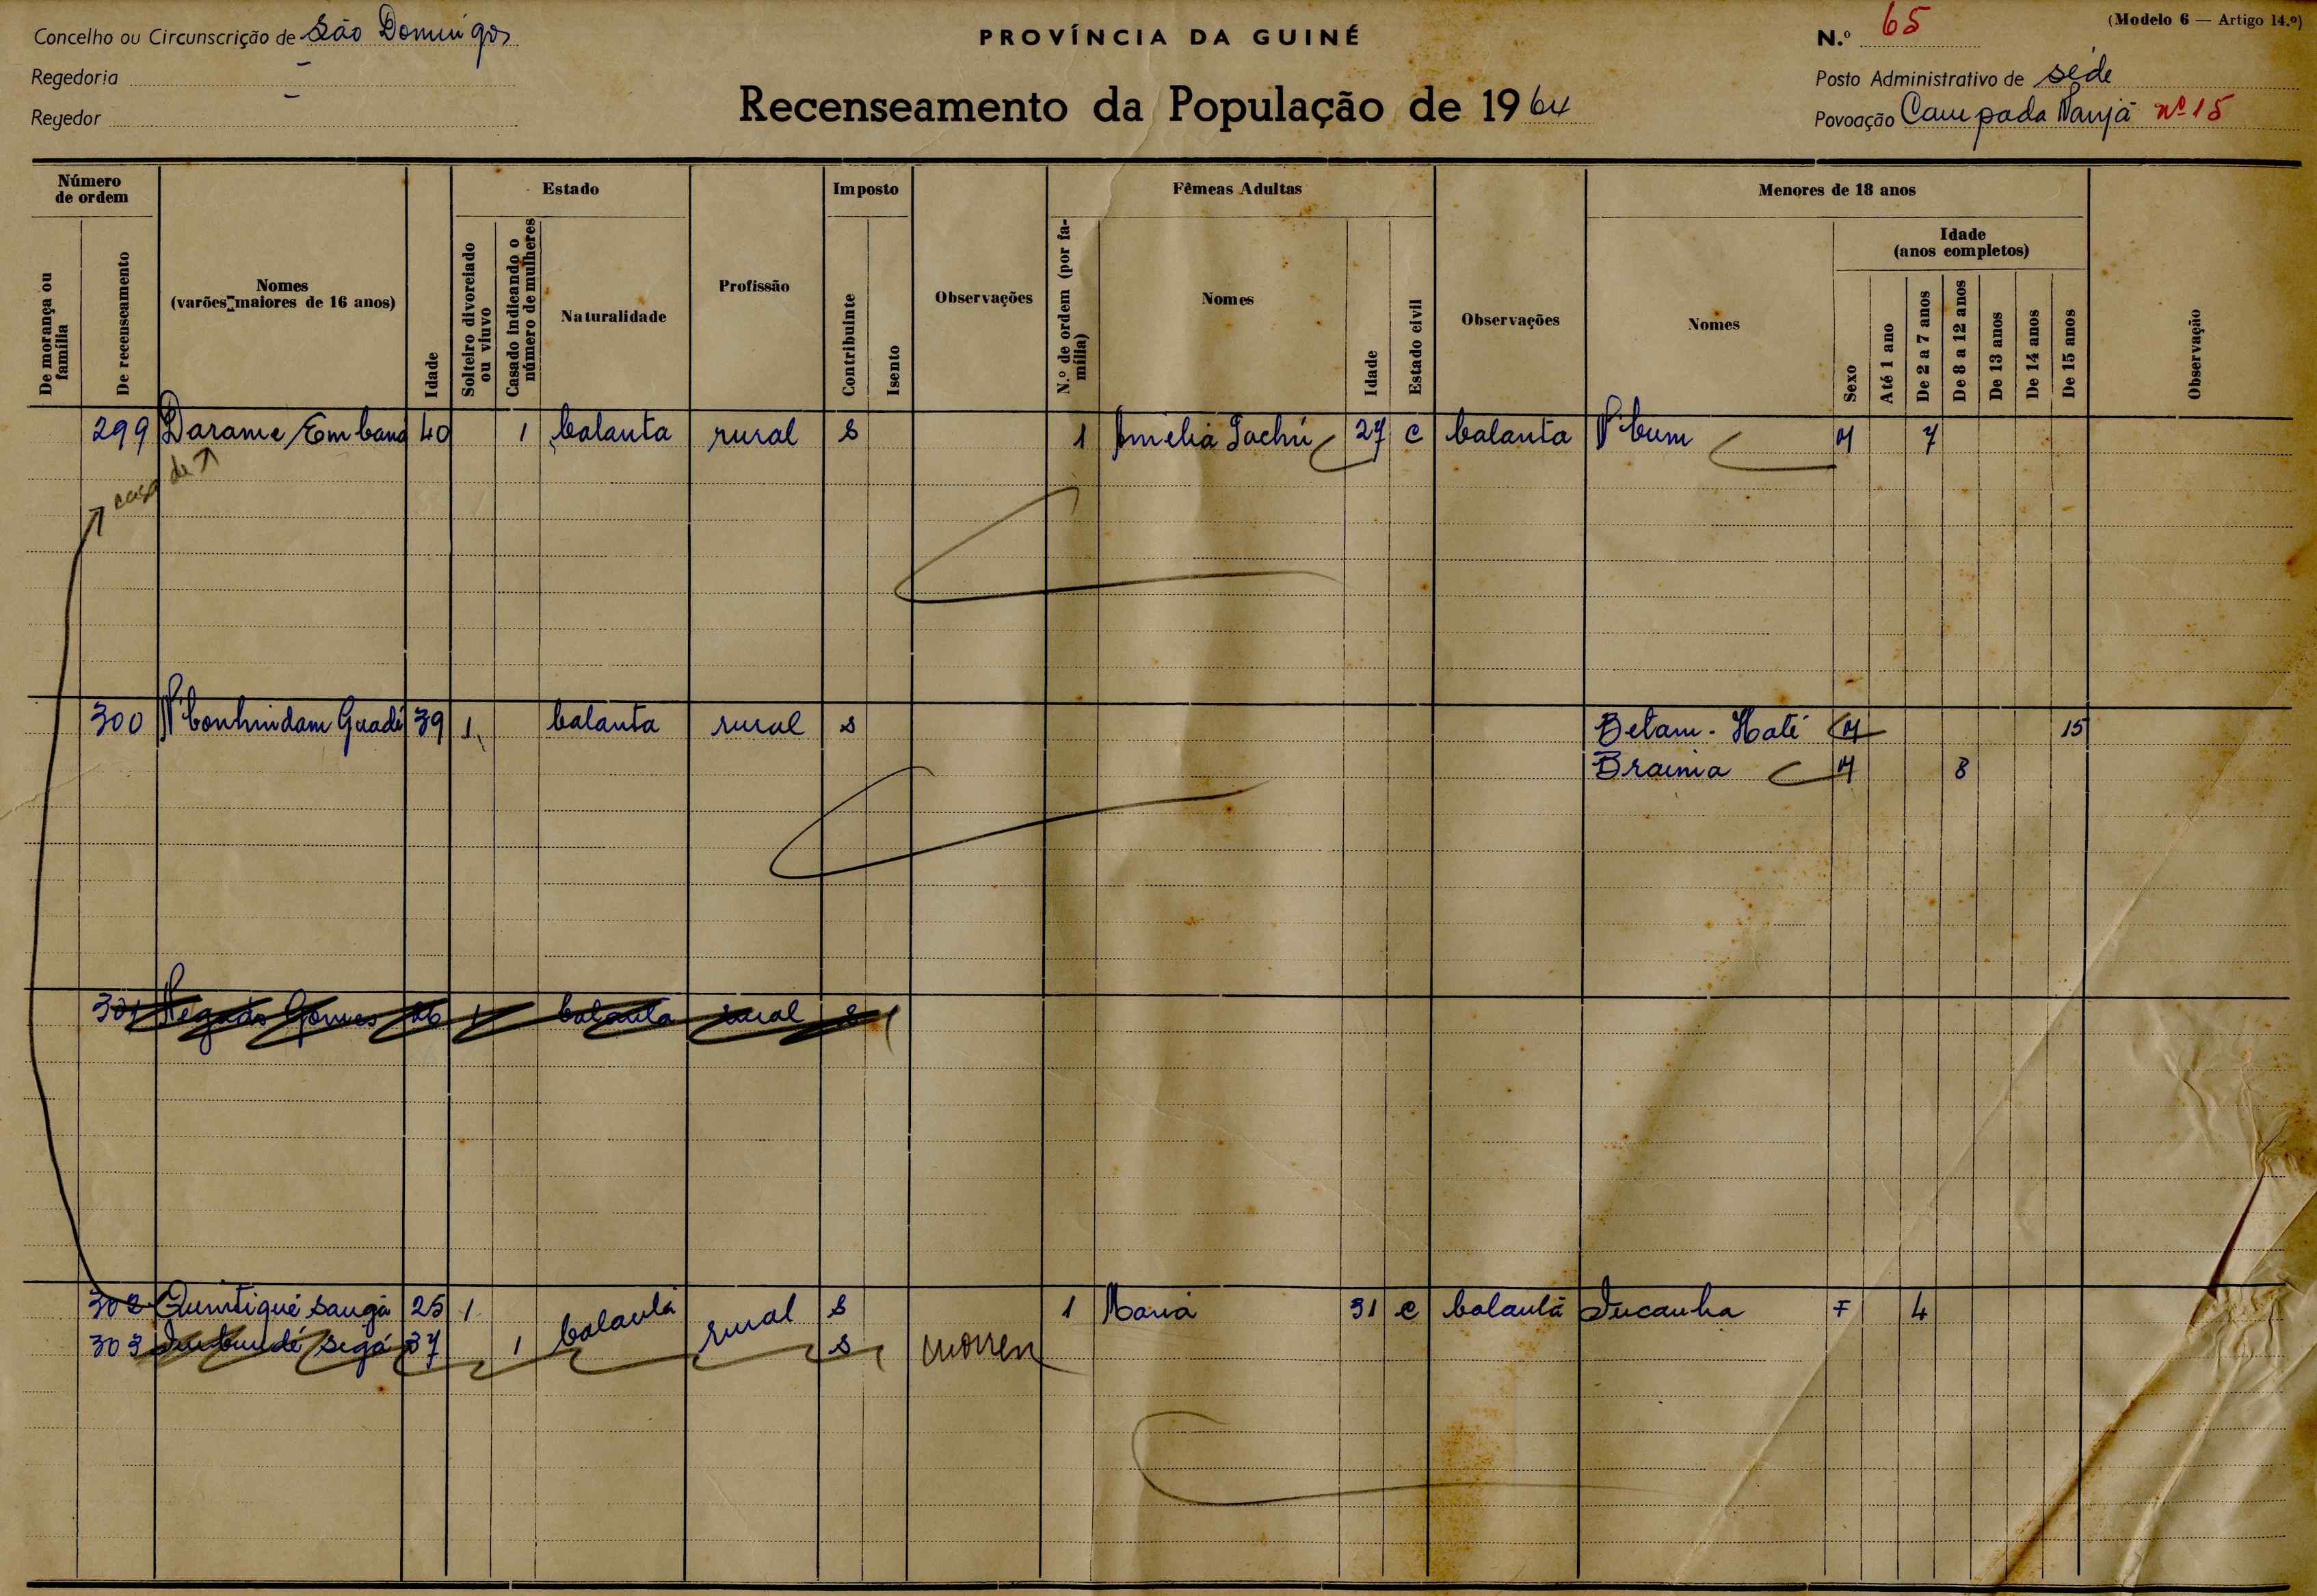 Concelho ou Circunscrição de São Domingos
Regedoria –
Regedor –
PROVÍNCIA DA GUINÉ
Recenseamento da População de 1964
(Modelo 6 — Artigo 14.º)
N.º 65
Posto Administrativo de séde
Povoação Campada Nanjá nº 15
Número de ordem
De morança ou família
De recenseamento
Nomes (varões maiores de 16 anos)
Idade
Estado
Solteiro divorciado ou viuvo
Casado indicando o número de mulheres
Naturalidade
Profissão
Imposto
Contribuinte
Isento
Observações
Fêmeas Adultas
N.º de ordem (por família)
Nomes
Idade
Estado civil
Observações
Menores de 18 anos
Nomes
Sexo
Idade (anos completos)
Até 1 ano
De 2 a 7 anos
De 8 a 12 anos
De 13 anos
De 14 anos
De 15 anos
Observação
299 Darame Embana 40 1 balanta rural s 1 Amélia 27 c balanta N'bum M 7
casa de
300 39 1 balanta rural s Betam - Haté M 15
Brainia M 8
301 Negado Gomes 26 1 balanta rural s
302 Quintiqué Sanga 25 1 balanta rural s 1 Maria 31 c balanta Jucanha F 4
303 37 1 s morreu